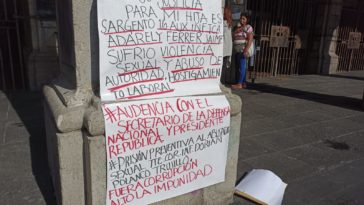 JUSTICIA
PARA MI HIJA ES
SARGENTO 1/o AUX. INF.
ADARELY FERRER JAIME
SUFRIO VIOLENCIA
SEXUAL Y ABUSO DE
AUTORIDAD, HOSTIGAMIEN
TO LABORAL
#AUDIENCIA CON EL
SECRETARIO DE LA DEFENSA
NACIONAL Y PRESIDENTE
REPUBLICA
#PRISIÓN PREVENTIVA AL ABUSADOR
SEXUAL TTE. COR. INF. DORIAN
POLANCO TRUJILLO
FUERA CORRUPCIÓN
ALTO LA IMPUNIDAD